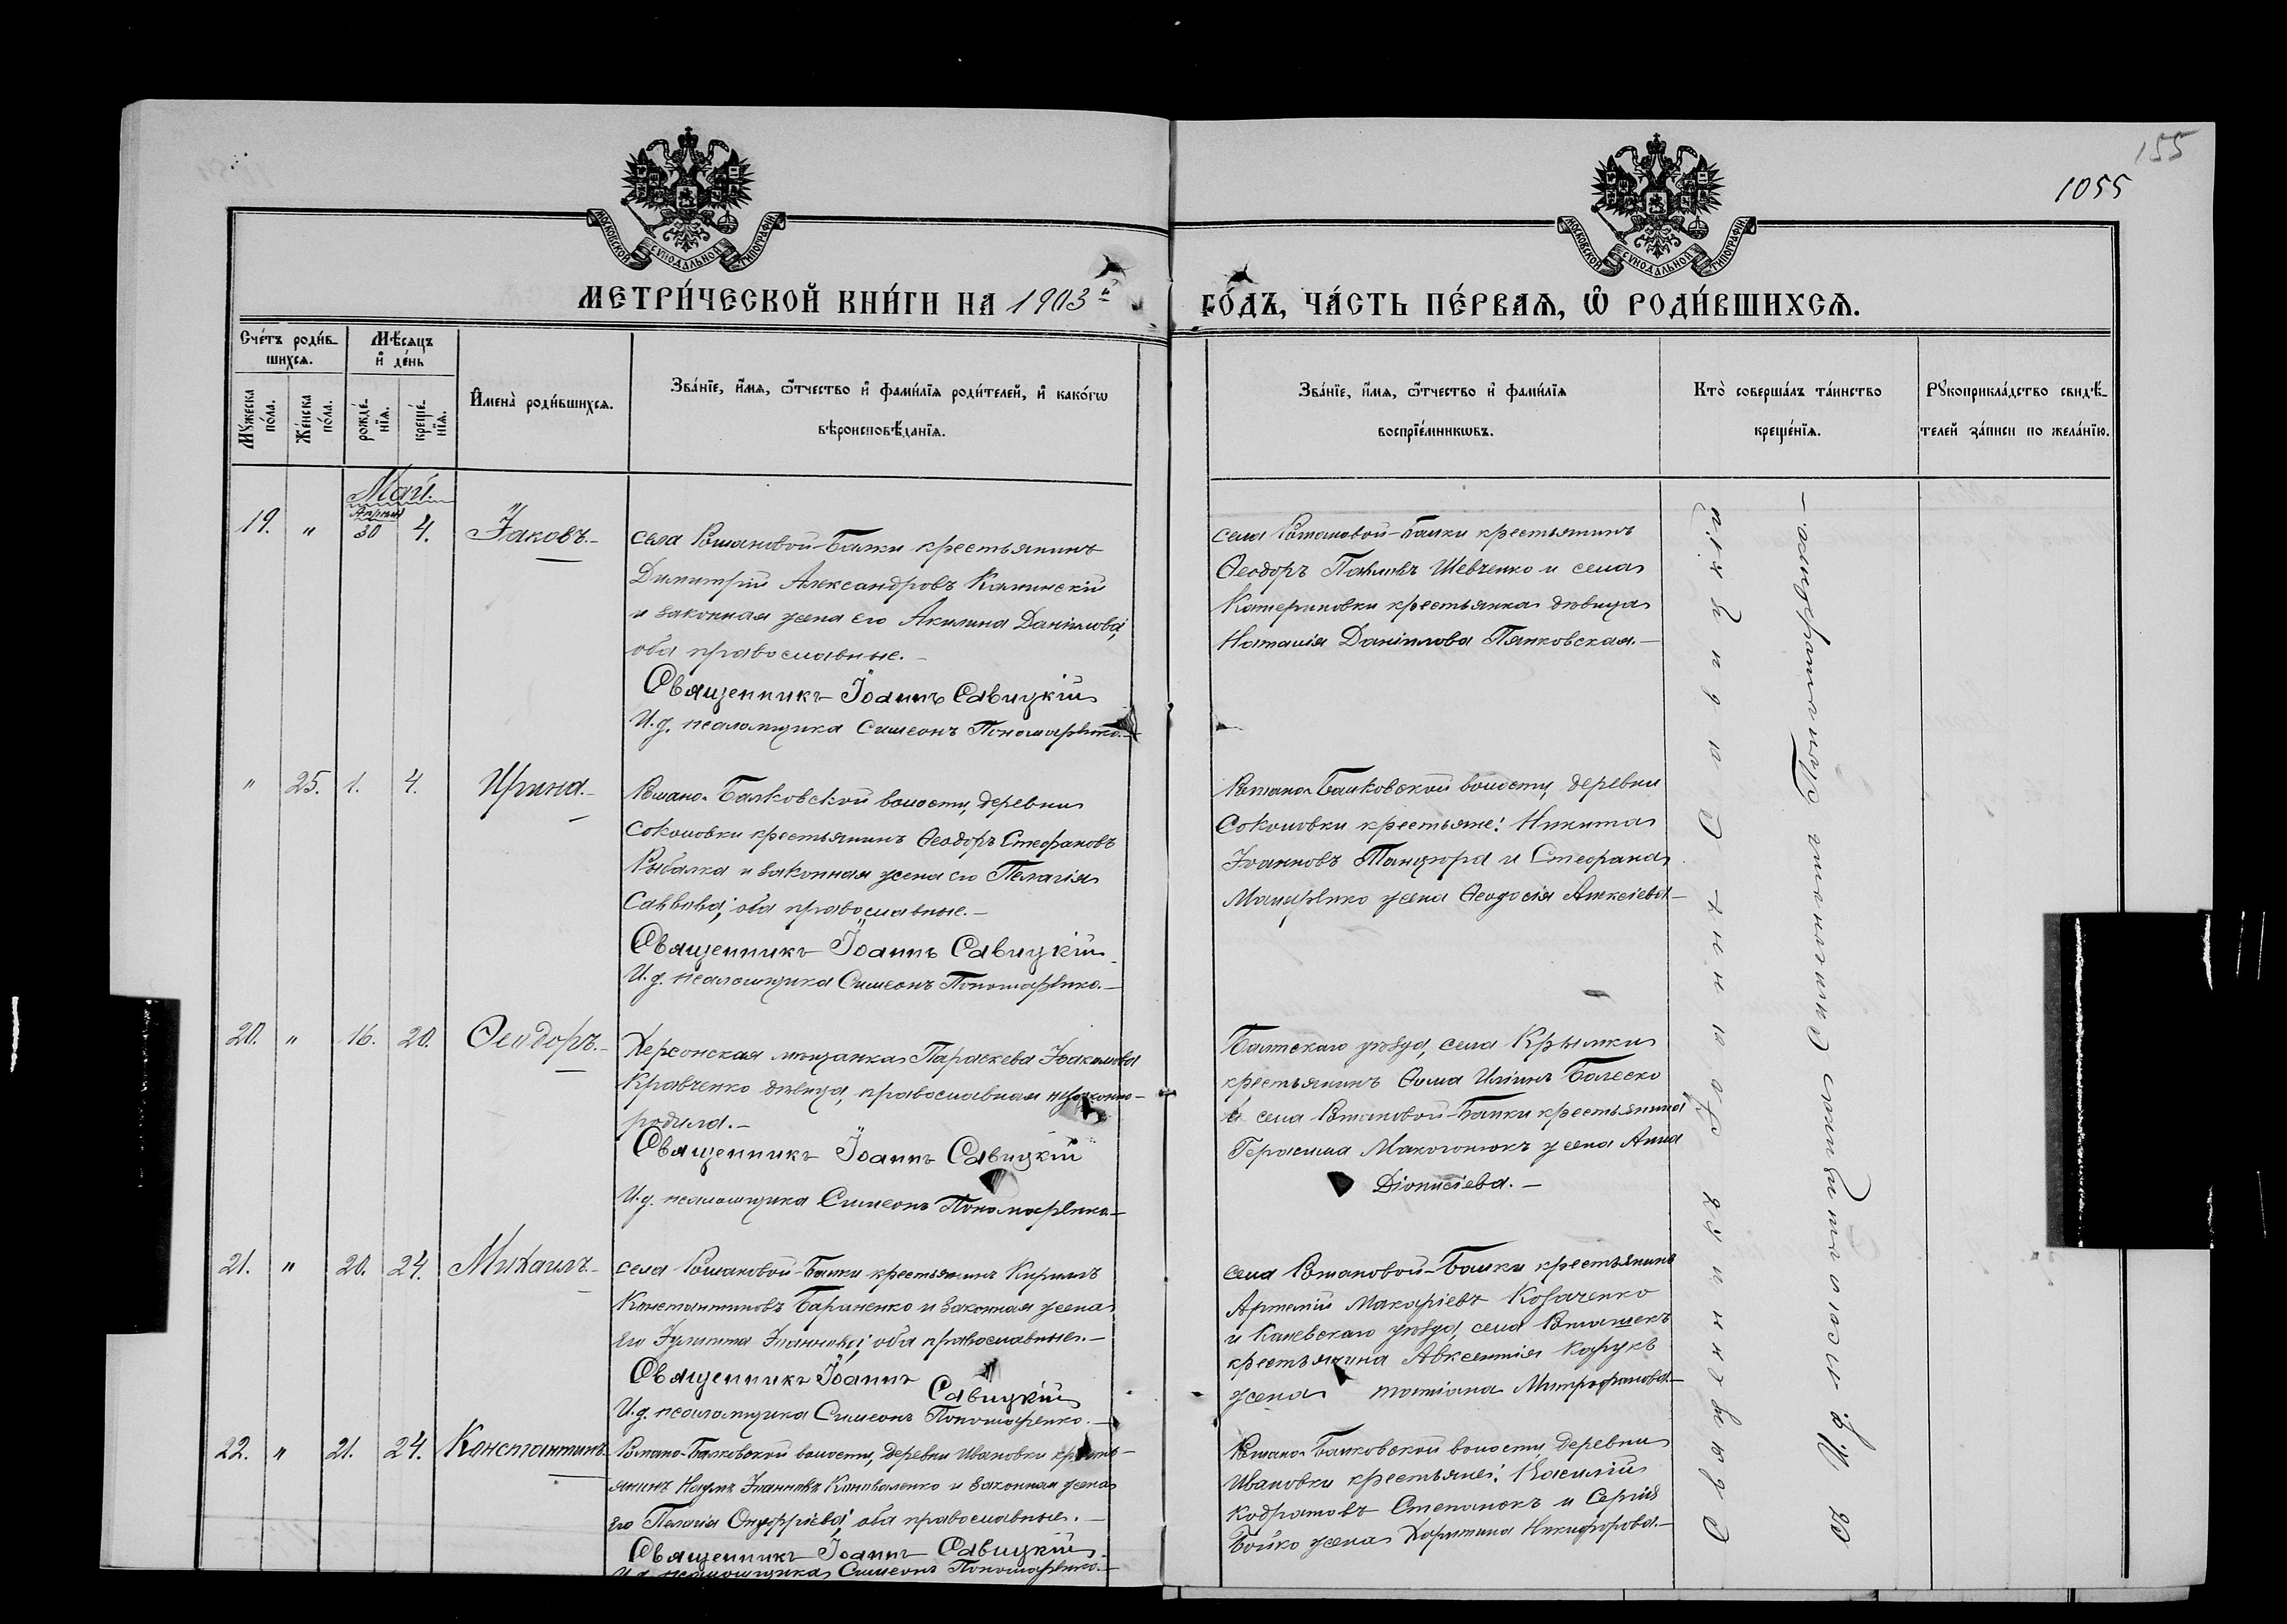 155
1055
МОСКОВСКОЙ СУНОДАЛЬНОЙ ТИПОГРАФІИ
МОСКОВСКОЙ СУНОДАЛЬНОЙ ТИПОГРАФІИ
МЕТРИ́ЧЕСКОЙ КНИ́ГИ НА 1903й
ГО́ДЪ, ЧА́СТЬ ПЕ́РВАЯ, Ѡ РОДИ́ВШИХСЯ.
Сче́тъ роди́в-
шихся.
Мѣ́сяцъ
и де́нь
Мꙋ́жеска по́ла.
Же́нска по́ла.
рожде́-
нїя.
креще́-
нїя.
И҆мена̀ роди́вшихся.
Зва́нїе, и҆́мя, ѻ҆́тчество и҆ фами́лїя роди́телей, и҆ како́гѡ
вѣроисповѣ́данїя.
Зва́нїе, и҆́мя, ѻ҆́тчество и҆ фами́лїя
воспрїе́мникѡвъ.
Кто̀ соверша́лъ та́инство
креще́нїя.
Рꙋкоприкла́дство свидѣ́-
телей за́писи по жела́нїю.
Май.
19. " Апрѣля 30 4. Іаковъ.-
села Романовой-Балки крестьянинъ
Димитрій Александровъ Калинскій
и законная жена его Акилина Даніилова,
оба православные.-
Священникъ Іоаннъ Савицкій
И.д. псаломщика Симеонъ Пономаренко.-
села Романовой-Балки крестьянинъ
Ѳеодоръ Павловъ Шевченко и села
Катериновки крестьянка дѣвица
Наталія Даніилова Пятковская.-
" 25. 1. 4. Ирина.-
Романо-Балковской волости, деревни
Соколовки крестьянинъ Ѳеодоръ Стефановъ
Рыбалка и законная жена его Пелагія
Саввина, оба православные.-
Священникъ Іоаннъ Савицкій
И.д. псаломщика Симеонъ Пономаренко.-
Романо-Балковской волости, деревни
Соколовки крестьяне: Никита
Іоанновъ Танцюра и Стефана
жена Ѳеодосія Алексіева.-
20. " 16. 20. Ѳеодоръ.-
Херсонская мѣщанка Параскева Іоакимова
Кравченко дѣвица, православная незаконно-
родила.-
Священникъ Іоаннъ Савицкій
И.д. псаломщика Симеонъ Пономаренко.-
Балтскаго уѣзда, села Крымки
крестьянинъ Ѳома Иліинъ Балеско
и села Романовой-Балки крестьянина
Герасима Макогонюкъ жена Анна
Діонисіева.-
21. " 20. 24. Михаилъ.-
села Романовой-Балки крестьянинъ Кирилъ
Константиновъ Бараненко и законная жена
его Іулитта Іоаннова, оба православные.-
Священникъ Іоаннъ Савицкій
И.д. псаломщика Симеонъ Пономаренко.-
села Романовой-Балки крестьянинъ
Артемій Макаріевъ Козаченко
и Каневскаго уѣзда, села
крестьянина Авксентія Карукъ
жена татіана Митрофанова.-
22. " 21. 24. Константинъ.-
Романо-Балковской волости, деревни Ивановки кресть-
янинъ Наумъ Іоанновъ Коноваленко и законная жена
его Пелагія Онуфріева, оба православные.-
Священникъ Іоаннъ Савицкій
И.д. псаломщика Симеонъ Пономаренко.-
Романо-Балковской волости, деревни
Ивановки крестьяне: Василій
Кодратовъ Степанюкъ и Сергія
Бойко жена Харитина Никифорова.-
Священникъ Іоаннъ Савицкій
И.д. псаломщика Симеонъ Пономаренко.-